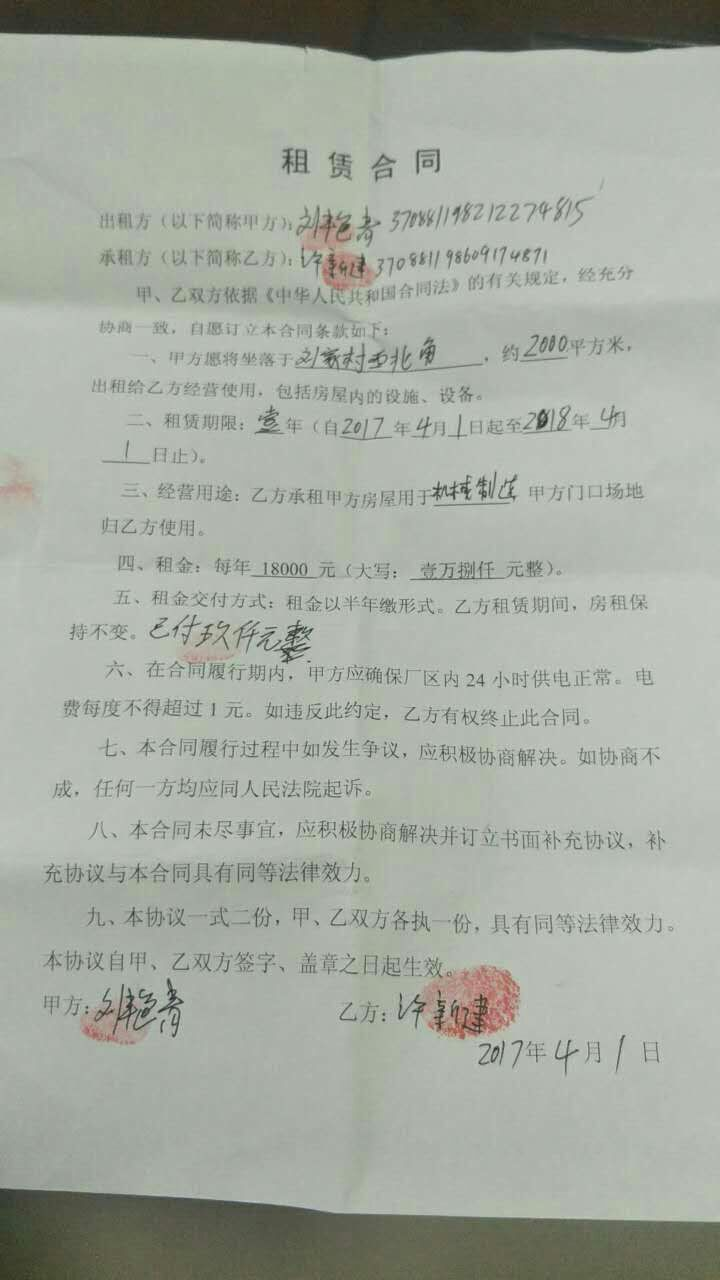 租赁合同
出租方（以下简称甲方）：刘艳青 370881198212274815
承租方（以下简称乙方）：许新建 370881198609174871
甲、乙双方依据《中华人民共和国合同法》的有关规定，经充分
协商一致，自愿订立本合同条款如下：
一、甲方愿将坐落于刘家村西北角，约2000平方米，
出租给乙方经营使用，包括房屋内的设施、设备。
二、租赁期限：壹年（自2017年4月1日起至2018年4月
1日止）。
三、经营用途：乙方承租甲方房屋用于机械制造 甲方门口场地
归乙方使用。
四、租金：每年 18000 元（大写： 壹万捌仟 元整）。
五、租金交付方式：租金以半年缴形式。乙方租赁期间，房租保
持不变。已付玖仟元整
六、在合同履行期内，甲方应确保厂区内24小时供电正常。电
费每度不得超过1元。如违反此约定，乙方有权终止此合同。
七、本合同履行过程中如发生争议，应积极协商解决。如协商不
成，任何一方均应同人民法院起诉。
八、本合同未尽事宜，应积极协商解决并订立书面补充协议，补
充协议与本合同具有同等法律效力。
九、本协议一式二份，甲、乙双方各执一份，具有同等法律效力。
本协议自甲、乙双方签字、盖章之日起生效。
甲方：刘艳青 乙方：许新建
2017年4月1日